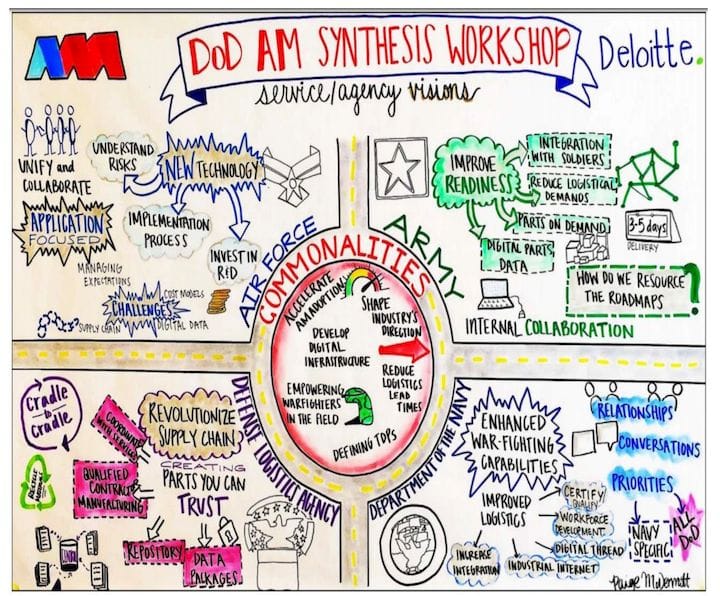 AM
DoD AM SYNTHESIS WORKSHOP
service/agency visions
Deloitte.
UNIFY and
COLLABORATE
UNDERSTAND
RISKS
NEW TECHNOLOGY
APPLICATION
FOCUSED
IMPLEMENTATION
PROCESS
INVEST IN
R&D
MANAGING
EXPECTATIONS
CHALLENGES
COST MODELS
SUPPLY CHAIN
DIGITAL DATA
AIR FORCE
IMPROVE
READINESS
INTEGRATION
WITH SOLDIERS
REDUCE LOGISTICAL
DEMANDS
PARTS ON DEMAND
DIGITAL PARTS
DATA
3-5 days
DELIVERY
HOW DO WE RESOURCE
THE ROADMAPS
?
INTERNAL COLLABORATION
ARMY
COMMONALITIES
ACCELERATE
AM ADOPTION
SHAPE
INDUSTRY'S
DIRECTION
DEVELOP
DIGITAL
INFRASTRUCTURE
REDUCE
LOGISTICS
LEAD
TIMES
EMPOWERING
WARFIGHTERS
IN THE FIELD
DEFINING TDPs
Cradle
to
Cradle
COORDINATE
WITH SERVICES
REVOLUTIONIZE
SUPPLY CHAIN
QUALIFIED
CONTRACT
MANUFACTURING
CREATING
PARTS YOU CAN
TRUST
RECYCLE
REPOSITORY
DATA
PACKAGES
DEFENSE LOGISTICS AGENCY
DEPARTMENT OF THE NAVY
ENHANCED
WAR-FIGHTING
CAPABILITIES
RELATIONSHIPS
CONVERSATIONS
PRIORITIES
IMPROVED
LOGISTICS
CERTIFY/
QUALIFY
WORKFORCE
DEVELOPMENT
DIGITAL THREAD
INCREASE
INTEGRATION
INDUSTRIAL INTERNET
NAVY
SPECIFIC
ALL
DoD
Paige McDermott